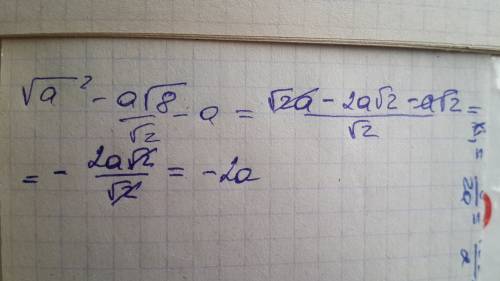 √a² - a√8/√2 - a = (√2a - 2a√2 - a√2)/√2 =
= - 2a√2/√2 = -2a